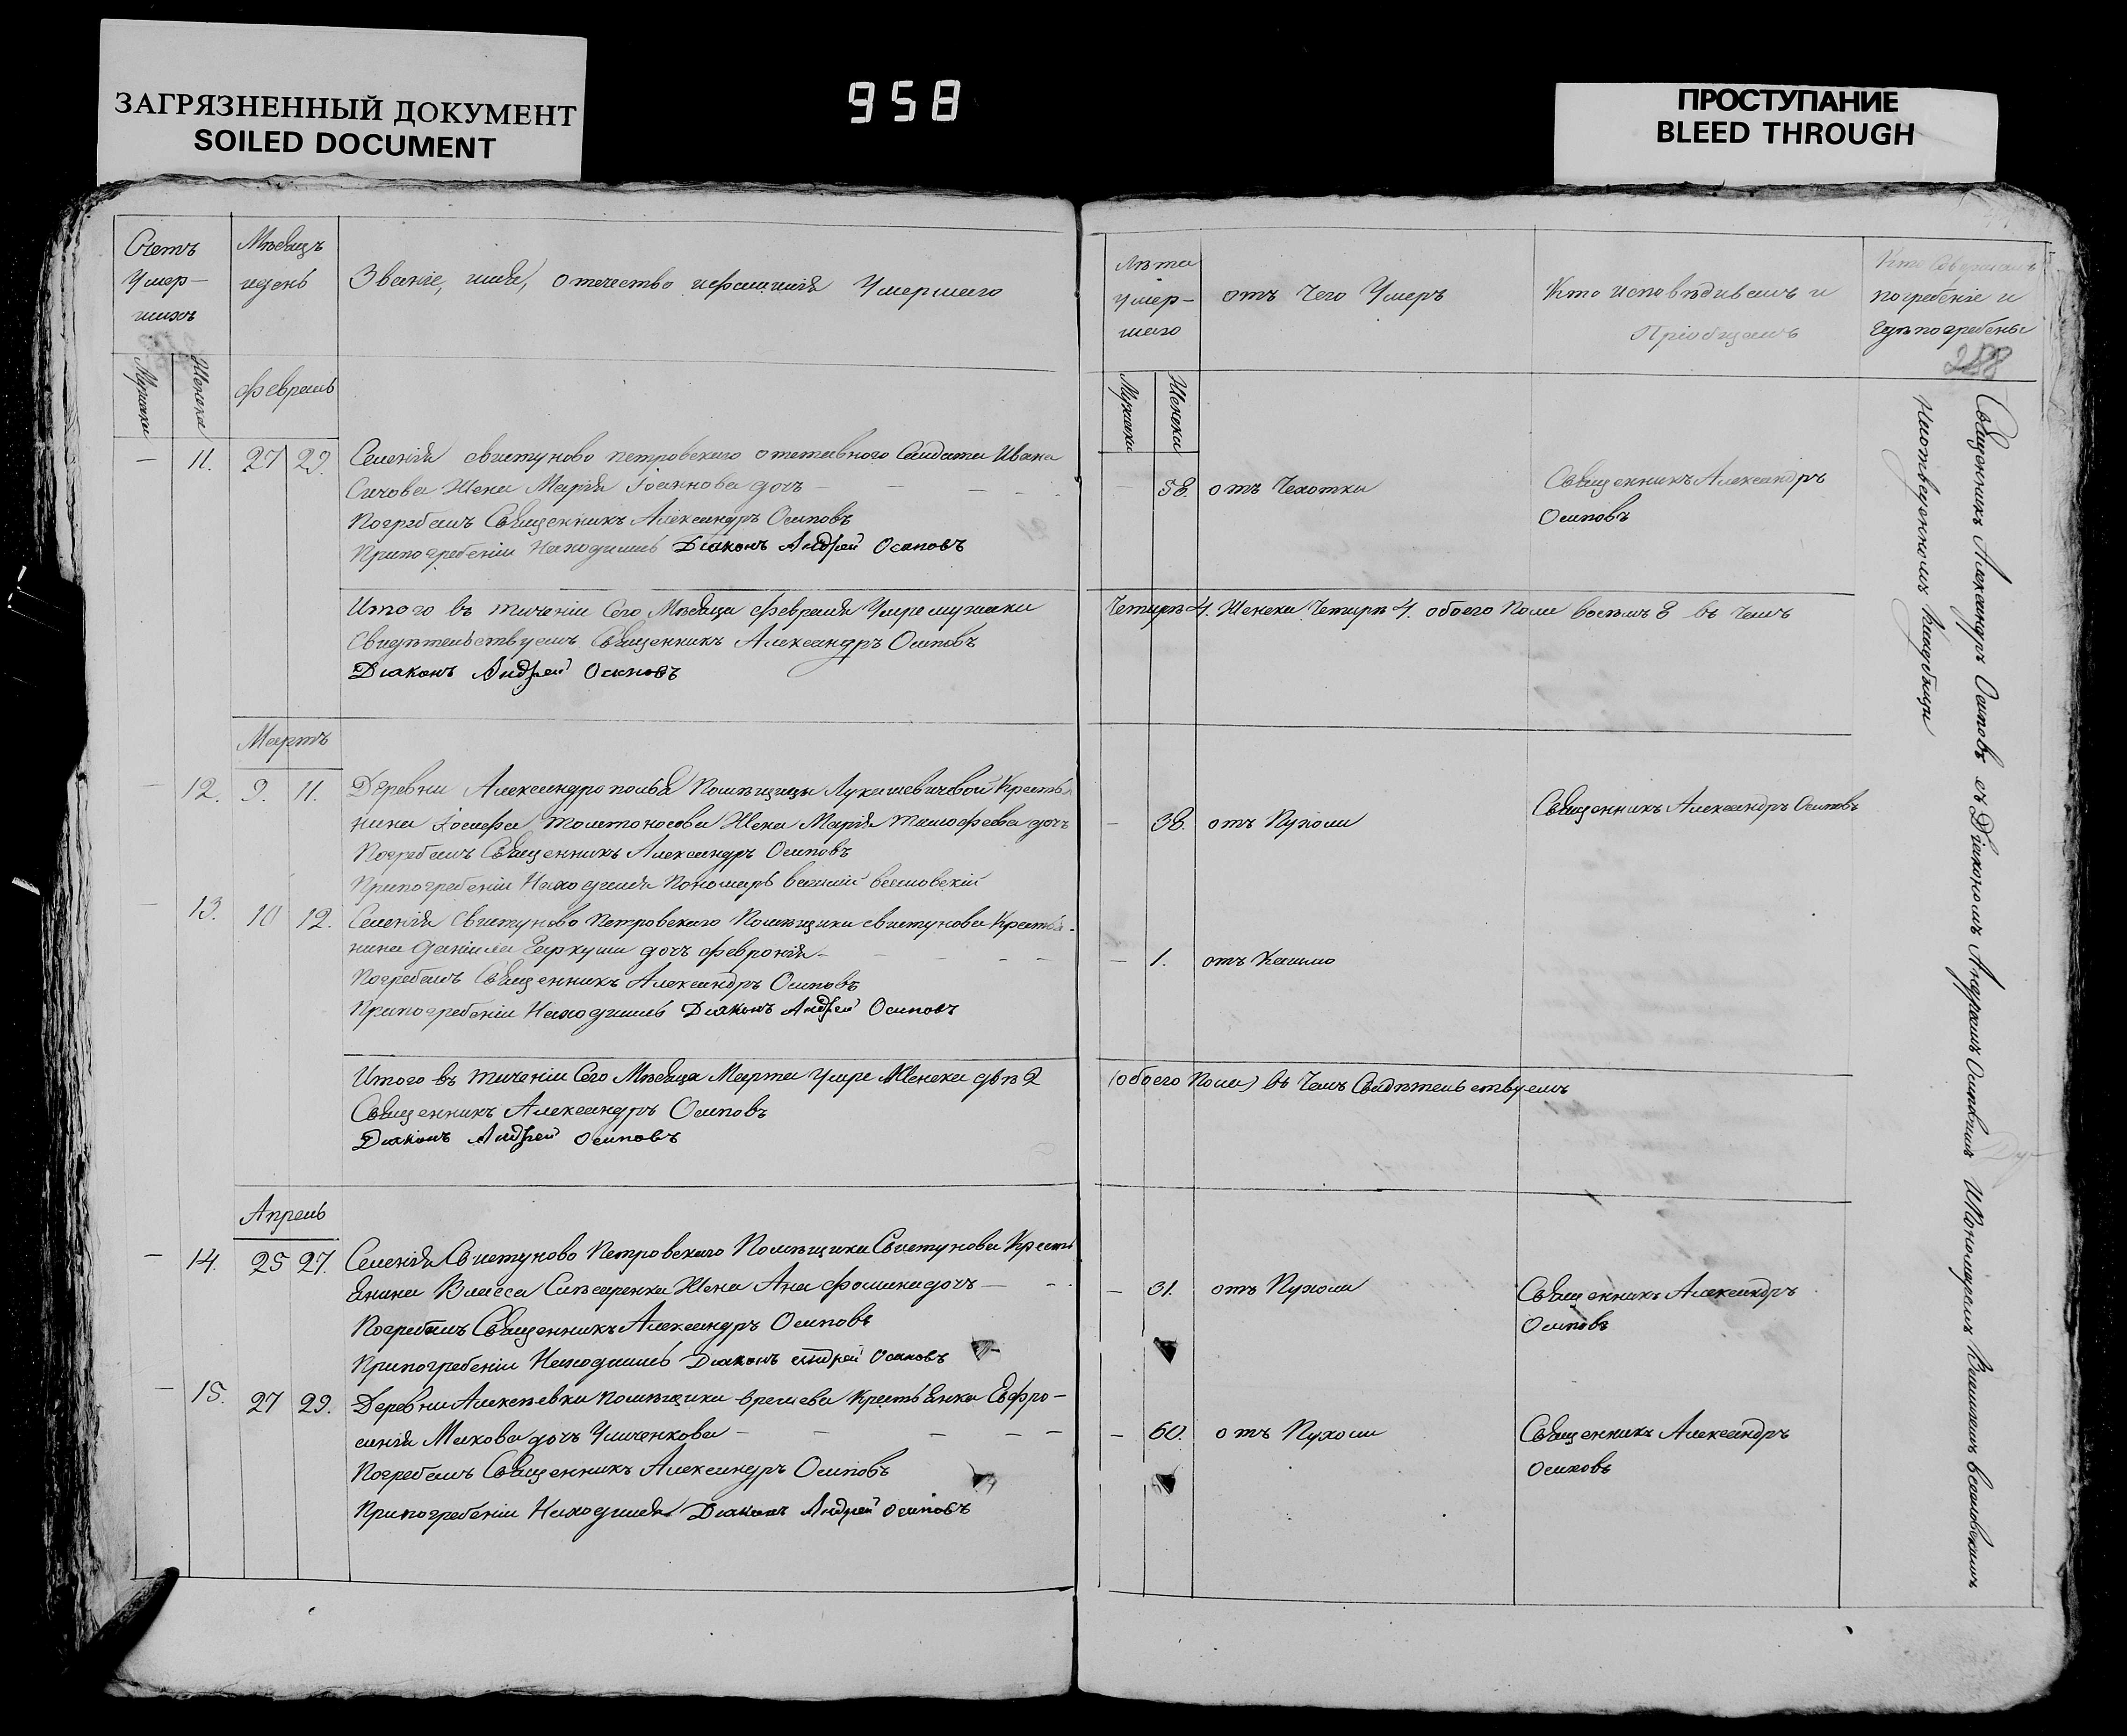 ЗАГРЯЗНЕННЫЙ ДОКУМЕНТ
SOILED DOCUMENT
958
ПРОСТУПАНИЕ
BLEED THROUGH
Счетъ
Умер-
шихъ
Мѣсяцъ
идень
Званіе, имя, отечество ифамилія Умершаго
Мужска
Женска
февраль
— 11. 27 29. Селенія свистуново петровскаго отставного Салдата Ивана
Сичова Жена Марія Іоаннова дочь — — — —
Погребалъ Священникъ Александръ Осиповъ
Припогребеніи Находились Діаконъ Андрей Осиповъ
Итого въ теченіи Сего Мѣсяца февраля Умре мужска
Свидѣтельствуемъ Священникъ Александръ Осиповъ
Діаконъ Андрей Осиповъ
Мартъ
— 12. 9. 11. Деревни Александрополья Помѣщицы Лукашевичевой Крестья
нина Іосифа Толстоносова Жена Марія Тимофеева дочь
Погребалъ Священникъ Александръ Осиповъ
Припогребеніи Находился Пономарь
— 13. 10 12. Селенія Свистуново Петровскаго Помѣщика свистунова Крестья-
нина Даніила Гаркуши дочь феврония — — — —
Погребалъ Священникъ Александръ Осиповъ
Припогребеніи Находились Діаконъ Андрей Осиповъ
Итого въ теченіи Сего Мѣсяца Марта умре Женска двѣ 2
Священникъ Александръ Осиповъ
Діаконъ Андрей Осиповъ
Апрель
— 14. 25 27. Селенія Свистуново Петровскаго Помѣщика Свистунова Кресть
янина Власса Жена Ана фомина дочь — —
Погребалъ Священникъ Александръ Осиповъ
Припогребеніи Находились Діаконъ Андрей Осиповъ
— 15. 27 29. Деревни Алексѣевки помѣщика Крестьянка Евфро-
синія дочь — — — —
Погребалъ Священникъ Александръ Осиповъ
Припогребеніи Находился Діаконъ Андрей Осиповъ
Лѣта
умер-
шаго
отъ Чего Умеръ
Кто исповѣдывалъ и
Пріобщалъ
Кто Совершалъ
погребеніе и
Гдѣ погребены
Мужска
Женска
— 58. отъ Чахотки Священникъ Александръ
Осиповъ
Четырѣ 4. Женска Четырѣ 4. обоего Пола восемь 8 въ Чемъ
— 38. отъ Пухоли Священникъ Александръ Осиповъ
— 1. отъ Кашлю
(обоего Пола) въ Чемъ Свидѣтельствуемъ
— 31. отъ Пухоли Священникъ Александръ
Осиповъ
— 60. отъ Пухоли Священникъ Александръ
Осиповъ
Священникъ Александръ Осиповъ съ Діакономъ Андреемъ Осиповымъ ИПономаремъ
Наотведенномъ Кладбищи